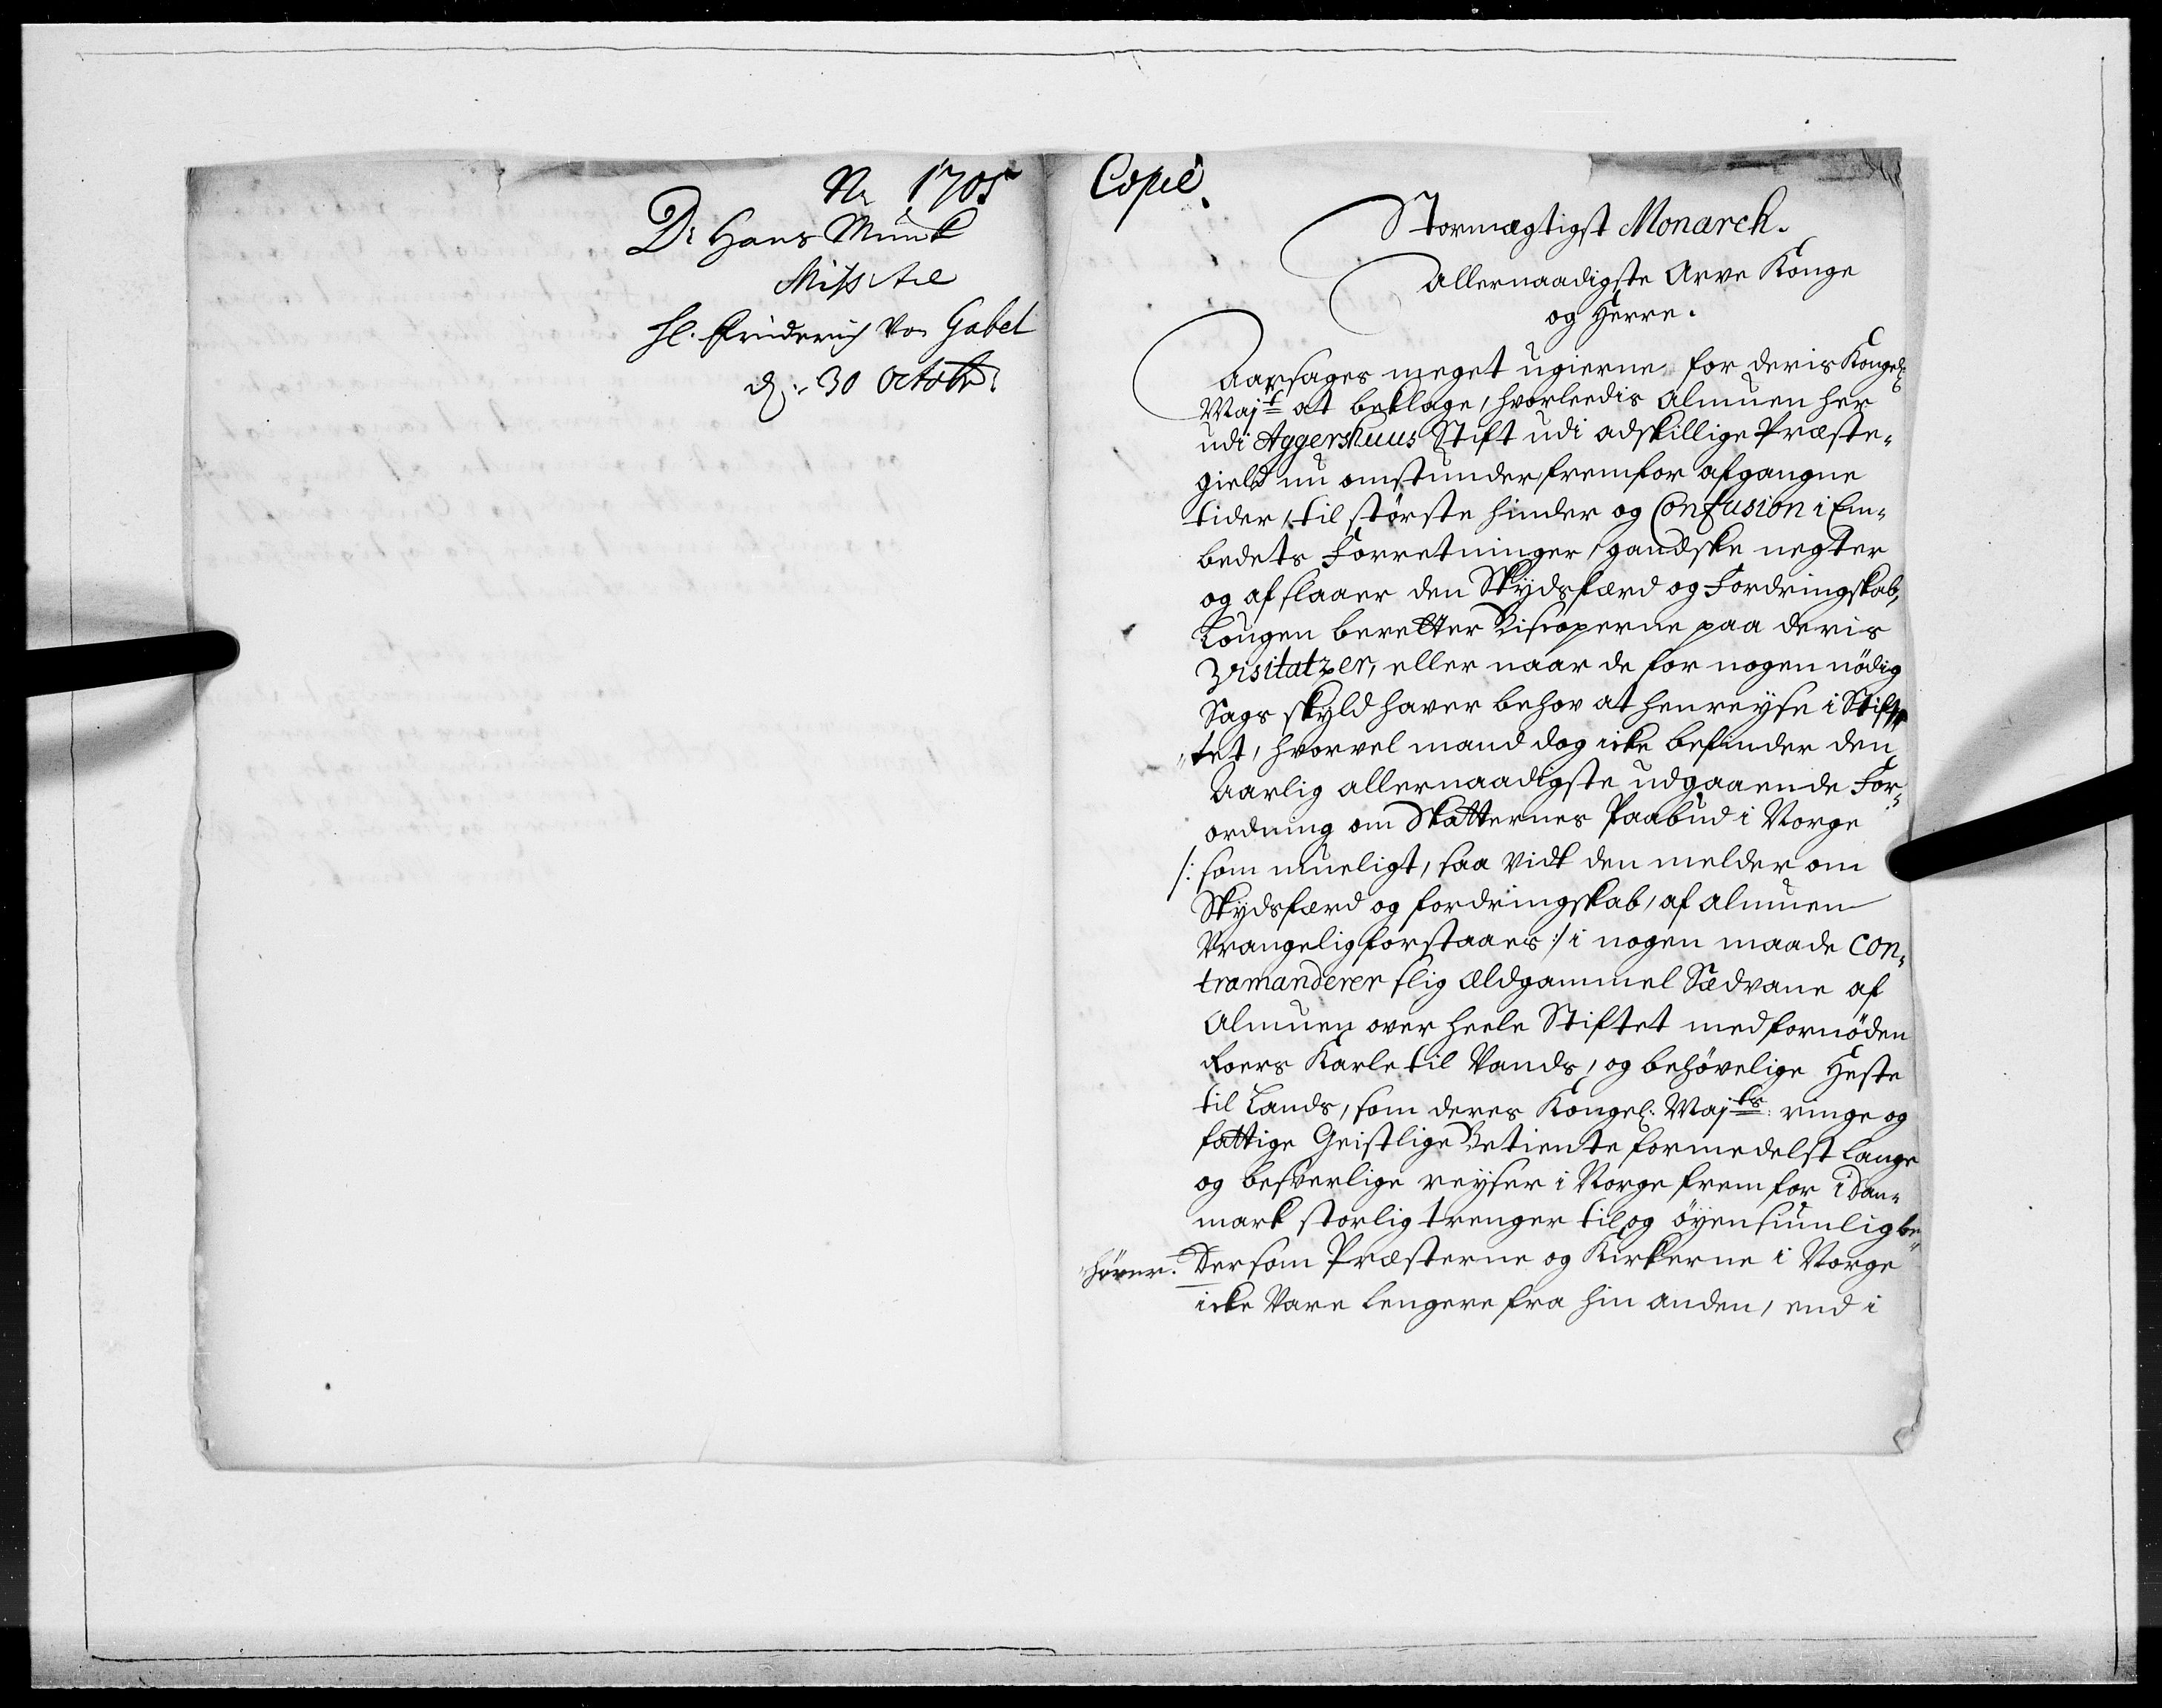 No 1705
Dr Hans Munk
Missive
Hl. Friderich von Gabel
d: 30 Octobr:
Copie.
Stormægtigst Monarch.
Allernaadigste Arve Konge
og Herre.
Aarsages meget ugierne for deris Kongel:
Majt at beklage, hvorleedis Almuen her
udi Aggershuus Stift udi adskillige Præste-
gield nu omstunder fremfor afgangne
tider, til største hinder og Confusion i Em-
bedets Forretninger, gandske negter
og afslaaer den Skydsferd og Fordringskab,
Lougen beretter Biscoperne paa deris
Visitatzer, eller naar de for nogen nödig
Sags skyld haver behov at henreyse i Stif-
tet, hvorvel mand dog icke befinder den
Aarlig allernaadigste udgaaende For-
ordning om Skatternes Paabud i Norge
/: som mueligt, saa vidt den melder om
Skydsferd og fordringskab, af almuen
Vrangelig forstaaes :/ i nogen maade con-
tramanderer slig Ældgammel Sædvane af
Almuen over heele Stiftet med fornöden
Roers Karle til Vands, og behövelige Heste
til Lands, som deres Kongel: Majts: ringe og
fattige Geistlige Betiente formedelst lange
og besverlige reyser i Norge frem for i Dan-
mark storlig trenger til og øyensiunlig be-
höver. Dersom Præsterne og Kirkerne i Norge
icke Vare lengere fra hin anden, end i